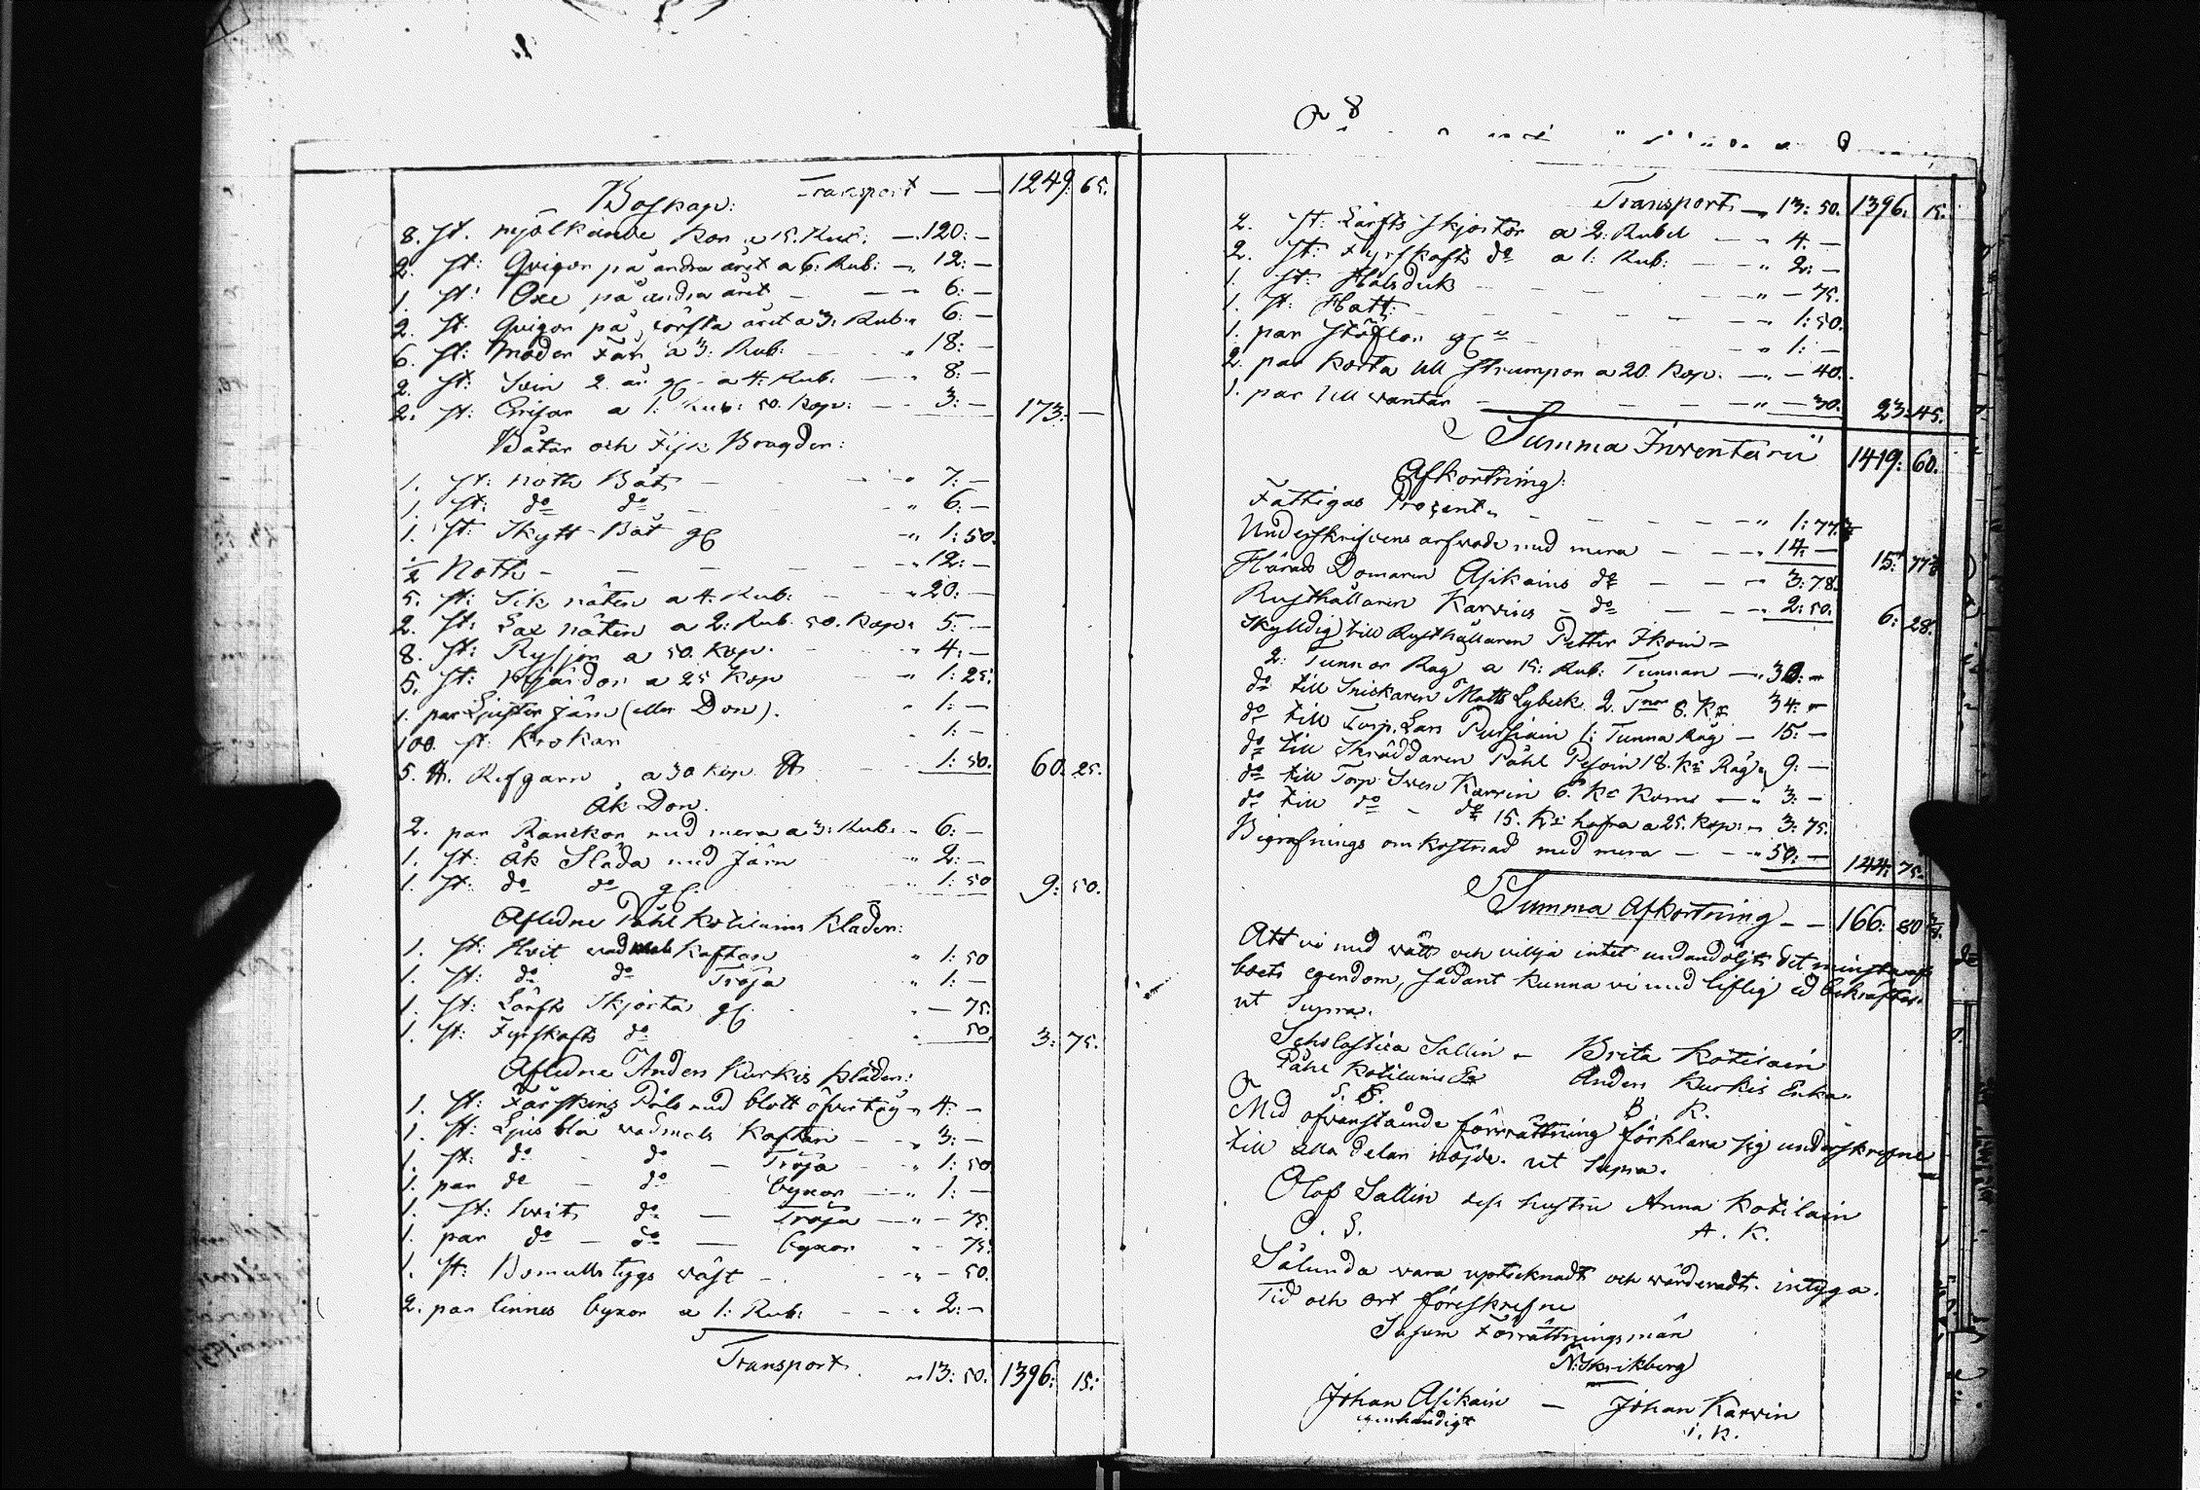 Transport — — 1249. 65.
Boskap:
8. st. mjölkande kor a 15. Rub: — 120: —
2. st: Qvigor på andra året a 6: Rub: — 12: —
1. st: Oxe på andra året — — 6: —
2. st. Qvigor på första året a 3: Rub: 6: —
6. st: moder Får a 3: Rub: — 18: —
2. st: Svin 2. år gl. a 4: Rub. — 8: —
2. st: Grisar a 1: Rub: 50. Kop: — 3: — 173: —
Båtar och Fisk Bragder:
1. st: noth Båt — 7: —
1. st: do do — 6: —
1. st: Skytt-Båt gl — 1: 50.
1/2 Noth — — — — 12: —
5. st: Sik näten a 4: Rub: — 20: —
2. st: Lax näten a 2: Rub. 50. Kop: 5: —
8. st: Ryssjor a 50. Kop. — 4: —
5. st: a 25 Kop — 1: 25:
1. par Ljuster järn (eller Don). 1: —
100. st: Krokar 1: —
5. ℔. Refgarn a 30 Kop ℔ — 1: 50. 60. 25.
Åk Don.
2. par med mera a 3: Rub: — 6: —
1. st: Åk Släda med Järn 2: —
1. st: do do gl. 1: 50 9: 50.
Afledne Påhl Kotilains Kläder:
1. st: Hvit vadmals Kaftan 1: 50
1. st: do do Tröja 1: —
1. st: Lärfts Skjorta gl. — 75.
1. st: Fyrskafts do 50. 3: 75.
Afledne Anders Kurkis Kläder:
1. st: Fårskins Päls med blott öfvertyg 4: —
1. st: Ljus blå vadmals Kaftan — 3: —
1. st: do — do — Tröja — 1: 50
1. par do — do Byxor — 1: —
1. st: hvit do — Tröja — — 75.
1. par do — do — Byxor — 75:
1. st: Bomulls tygs väst — — 50.
2. par linnes byxor a 1: Rub: — 2: —
Transport. 13: 50. 1396: 15:
8
Transport — 13: 50. 1396: 15.
2. st: Lärfts skjortor a 2: Rubel — 4. —
2. st: Fyrskafts do a 1: Rub: — 2: —
1. st: Halsduk — — — 75.
1. st: Hatt: — — 1: 50.
1. par Stöflor gl — 1: —
2. par korta ull strumpor a 20. Kop. — — 40.
1. par ull vantar — — — 30. 23: 45.
Summa Inventarii 1419: 60.
Afkortning:
Fattigas Procent — — 1: 77 3/4
Underskrifvens arfvode med mera — — 14: — 15: 77 3/4
Härads Domaren Asikains do — — 3: 78.
Rusthållaren Karvins — do — — 2: 50. 6: 28.
Skyldig till Rusthållaren Petter Ikoin
2: Tunnor Råg a 15: Rub: Tunnan — 30: —
do till Matts Lybeck 2. Tnr 8. Kr 34: —
do till Torp. Lars Pursiain 1: Tunna Råg — 15: —
do till Skräddaren Påhl Pesoin 18. Kr Råg 9: —
do till Torp. Sven Karvin 6. Kr Korn — 3: —
do till do — do 15. Kr hafra a 25. Kop: — 3: 75.
Begrafnings omkostnad med mera — — 50: — 144: 75.
Summa Afkortning — — 166: 80 3/4.
Att vi med vätt och vilja intet undandöljt det minsta af
boets egendom, sådant kunna vi med liflig ed bekräfta
ut Supra.
Scholastica Sallin — Brita Kotilain
Påhl Kotilains Ea Anders Kurkis Enka
S. S. B. K.
Med ofvanstående förrättning förklara sig underskrefne
till alla delar nöjde. ut Supra.
Olof Sallin dess hustru Anna Kotilain
O. S. A. K.
Sålunda vara uptecknadt och värderadt. intyga.
Tid och ort föreskrefne
Såsom Förrättningsmän
Johan Asikain — Johan Karvin
egenhändigt I. K.